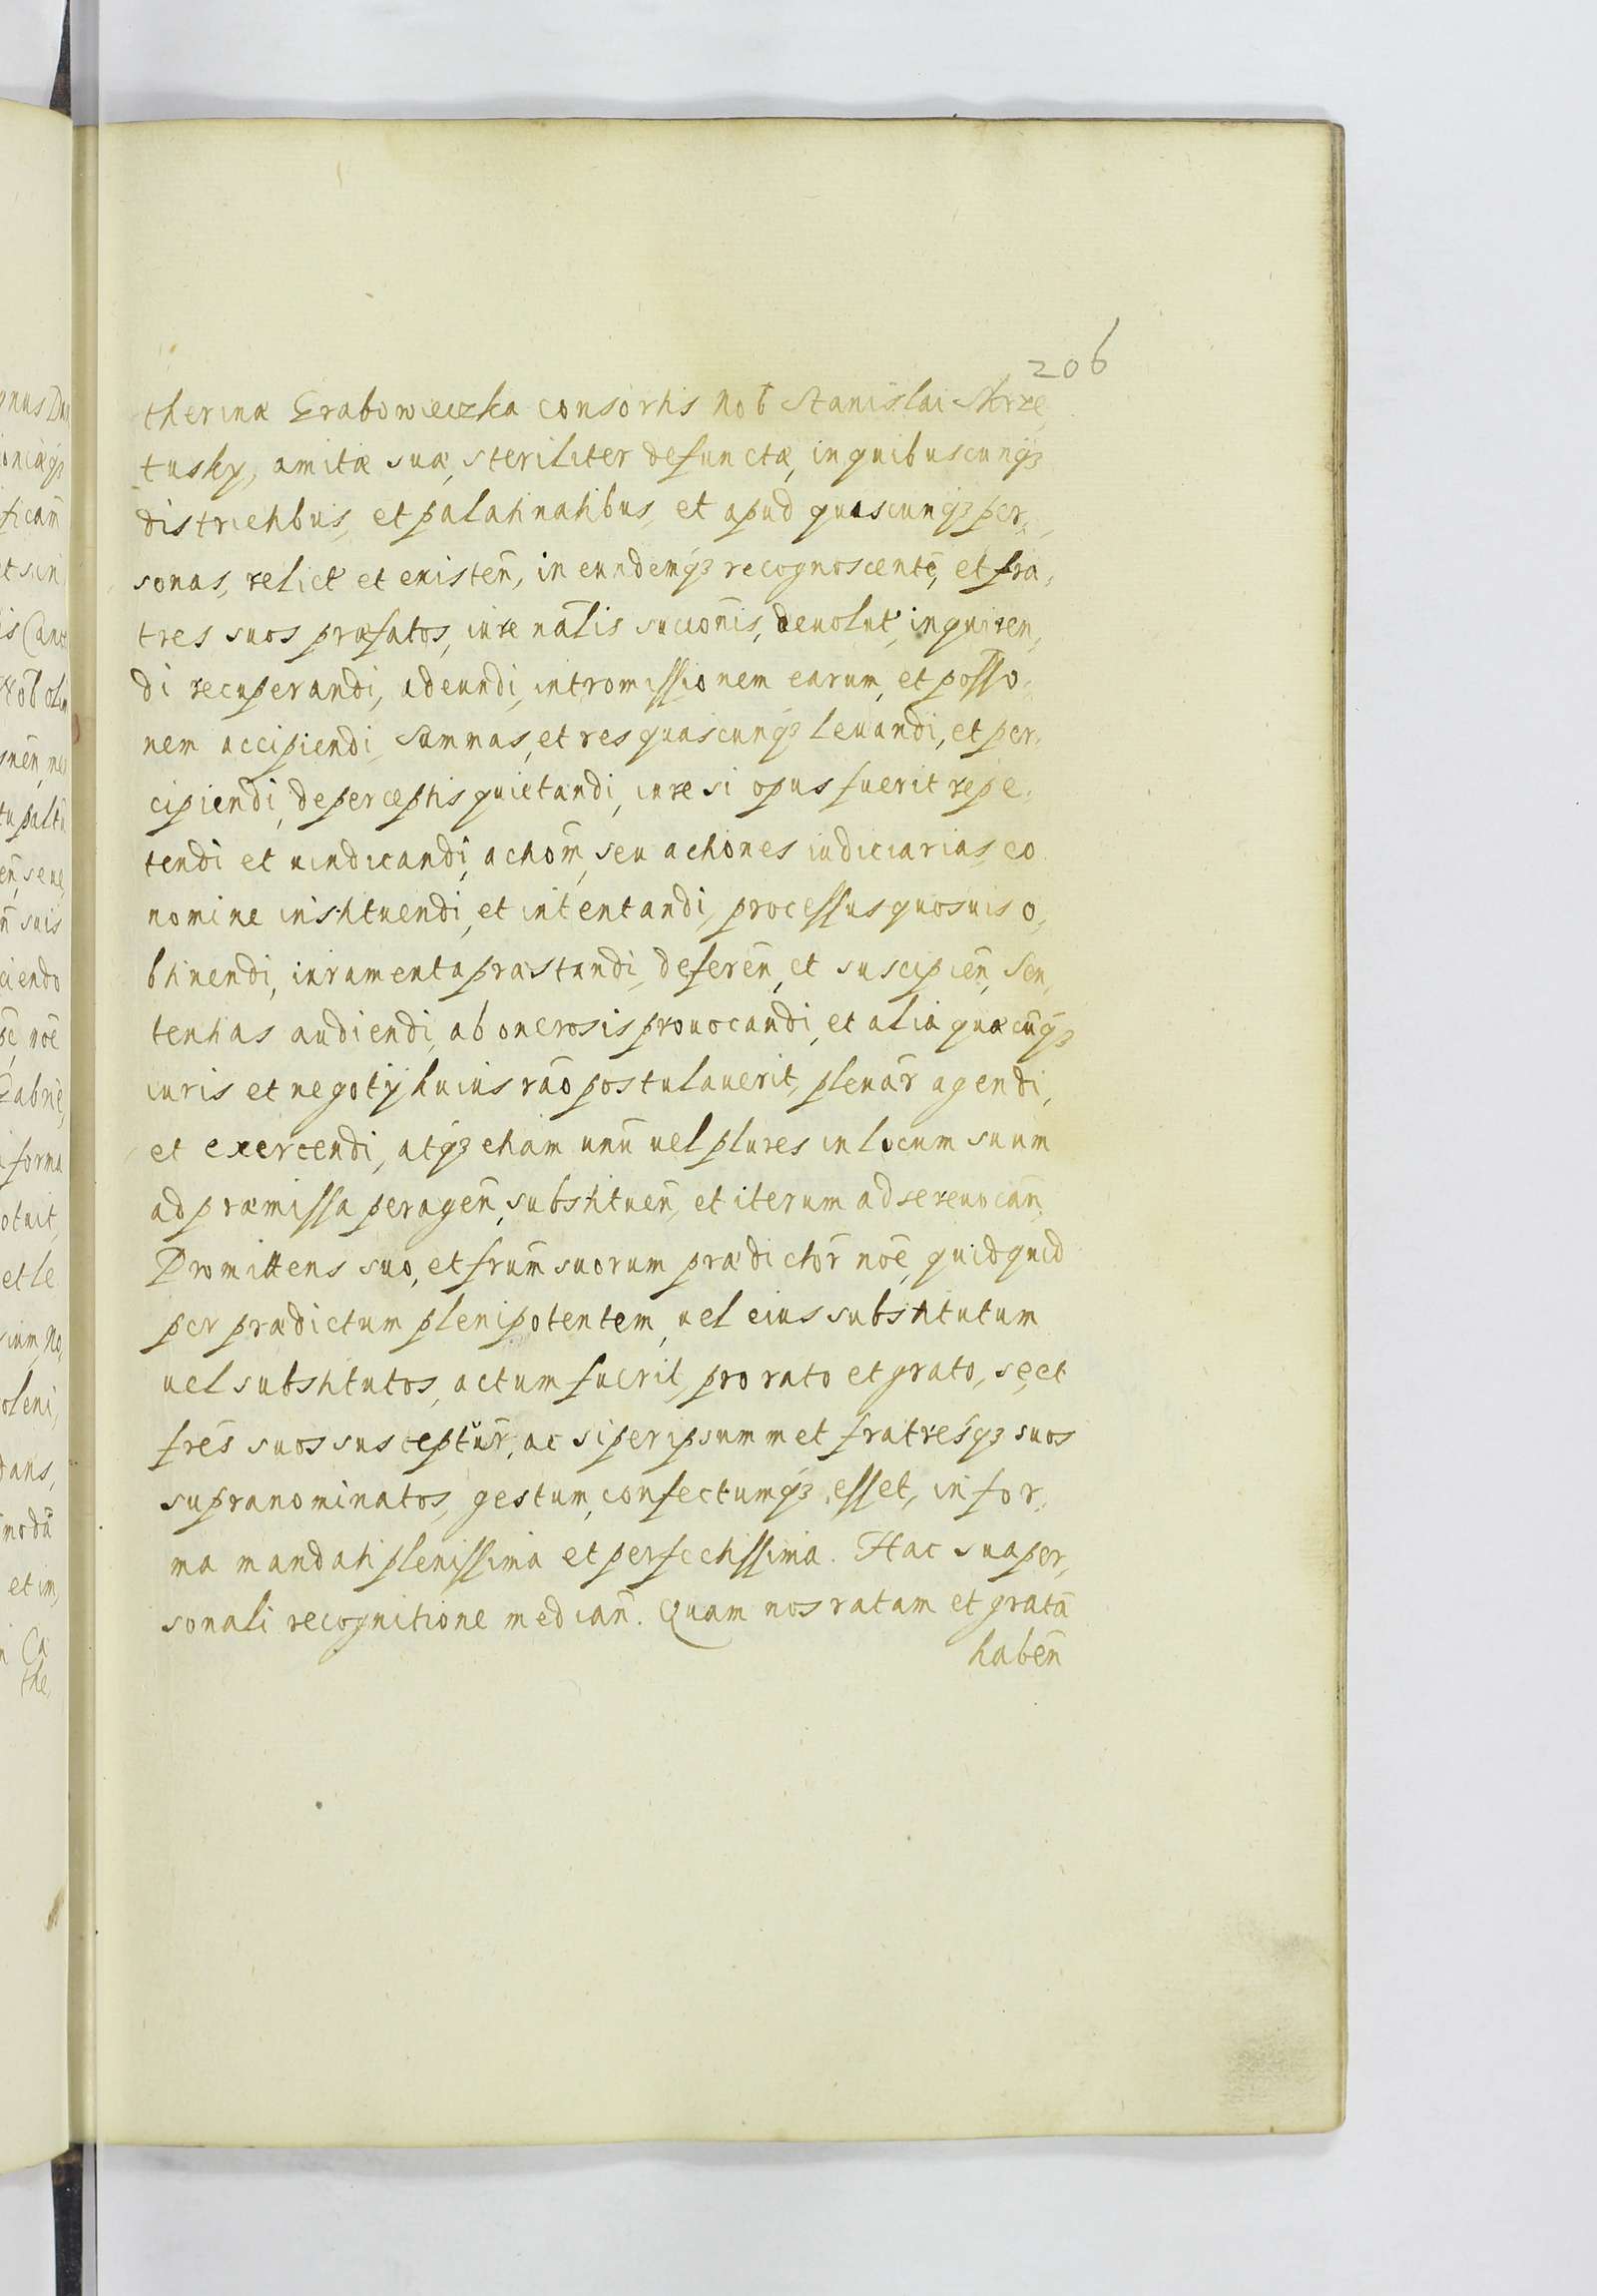 206
therinæ Grabowieczka consortis Nob Stanislai Skrze,
tusky, amitæ suæ, steriliter defunctæ, in quibuscunqꝫ
districtibus, et palatinatibus, et apud quascunqꝫ per,
sonas, relict et existen̄, in eundemqꝫ recognoscentē, et fra,
tres suos præfatos, iure nālis succionīs, deuolut, inquiren,
di recuperandi, adeundi, intromissionem earum, et posso,
nem accipiendi, Summas, et res quascunqꝫ leuandi, et per,
cipiendi, de perceptis quietandi, iure si opus fuerit repe,
tendi et uindicandi, actiom̄, seu actiones iudiciarias, eo
nomine instituendi, et intentandi, processus quosuis o,
btinendi, iuramenta præstandi, deferēn, et suscipiēn, Sen,
tentias audiendi, ab onerosis prouocandi, et alia quæcūqꝫ
iuris et negotÿ huius rāo postulauerit, plenār agendi,
et exercendi, atqꝫ etiam unū uel plures in locum suum
ad præmissa peragēn, substituēn, et iterum ad se reuocān,
Promittens suo, et frūm suorum prædictōr nōe, quidquid
per prædictum plenipotentem, uel eius substitutum
uel substitutos, actum fuerit, pro rato et grato, se, et
frēs suos susceptūr, ac si per ipsummet fratresqꝫ suos
supranominatos, gestum, confectumqꝫ, esset, in for,
ma mandati plenissima et perfectissima. Hac sua per,
sonali recognitione median̄. Quam nos ratam et gratā
habēn